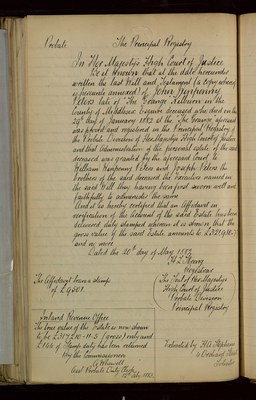 Probate The Principal Registry
In Her Majesty's High Court of Justice
Be it known that at the date hereunder
written the last Will and Testament (a copy whereof
is hereunto annexed) of John
Peters late of The Grange Kilburn in the
County of Middlesex Esquire deceased who died on the
29th day of January 1882 at The Grange aforesaid
was proved and registered in the Principal Registry of
the Probate Division of Her Majesty's High Court of Justice
and that Administration of the personal estate of the said
deceased was granted by the aforesaid Court to
William Peters and Joseph Peters the
brothers of the said deceased the Executors named in
the said Will they having been first sworn well and
faithfully to administer the same
And it is hereby certified that an Affidavit in
verification of the Account of the said Estate has been
delivered duly stamped wherein it is shown that the
gross value of the said Estate amounts to
and no more
Dated the 20th day of May 1882
Registrar
The Affidavit bears a stamp
of £9501.
The Seal of Her Majesty's
High Court of Justice
Probate Division
Principal Registry
Inland Revenue Office
The true value of the Estate is now shown
to be (gross) only and
of Stamp duty has been returned
By the Commissioners
Probate Duty
Extracted by
Solicitor